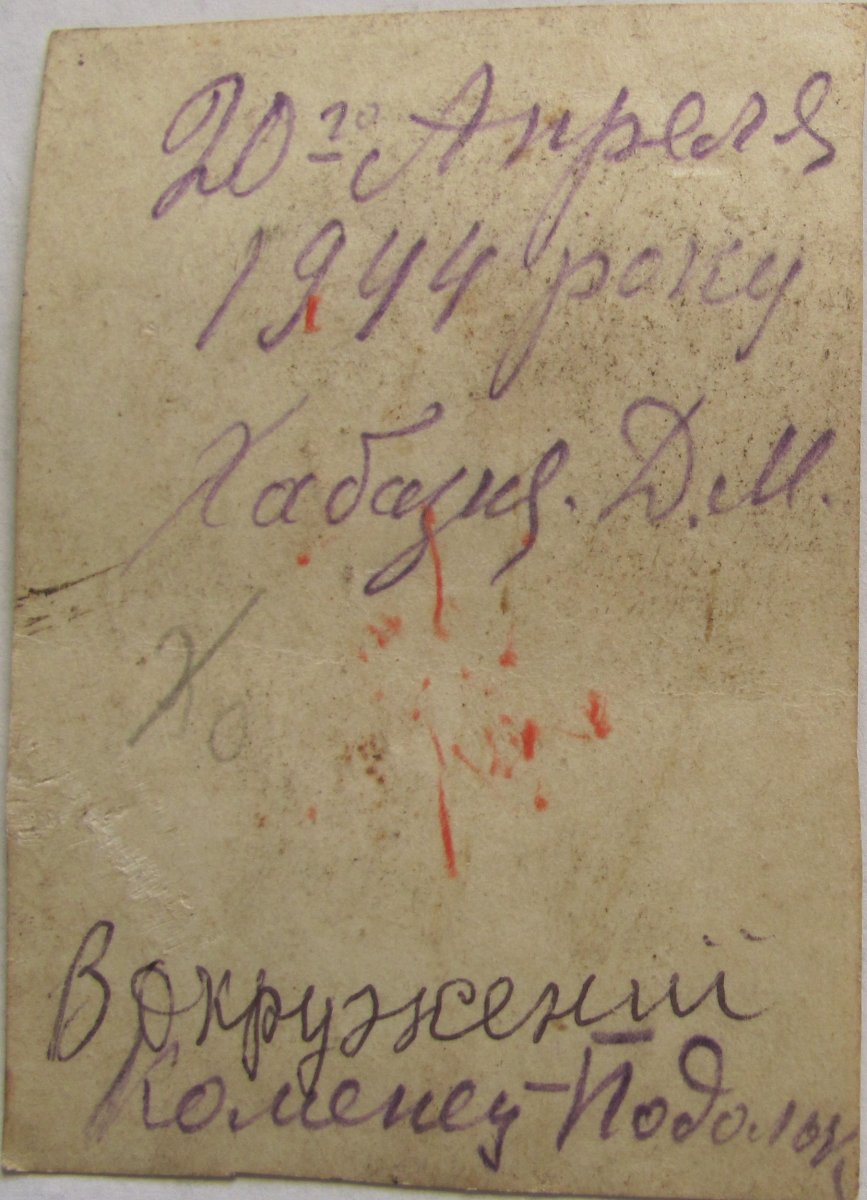 20го Апреля
1944 року
Хабазня. Д.М.
Хо
В окружений
Коменец-Подольск